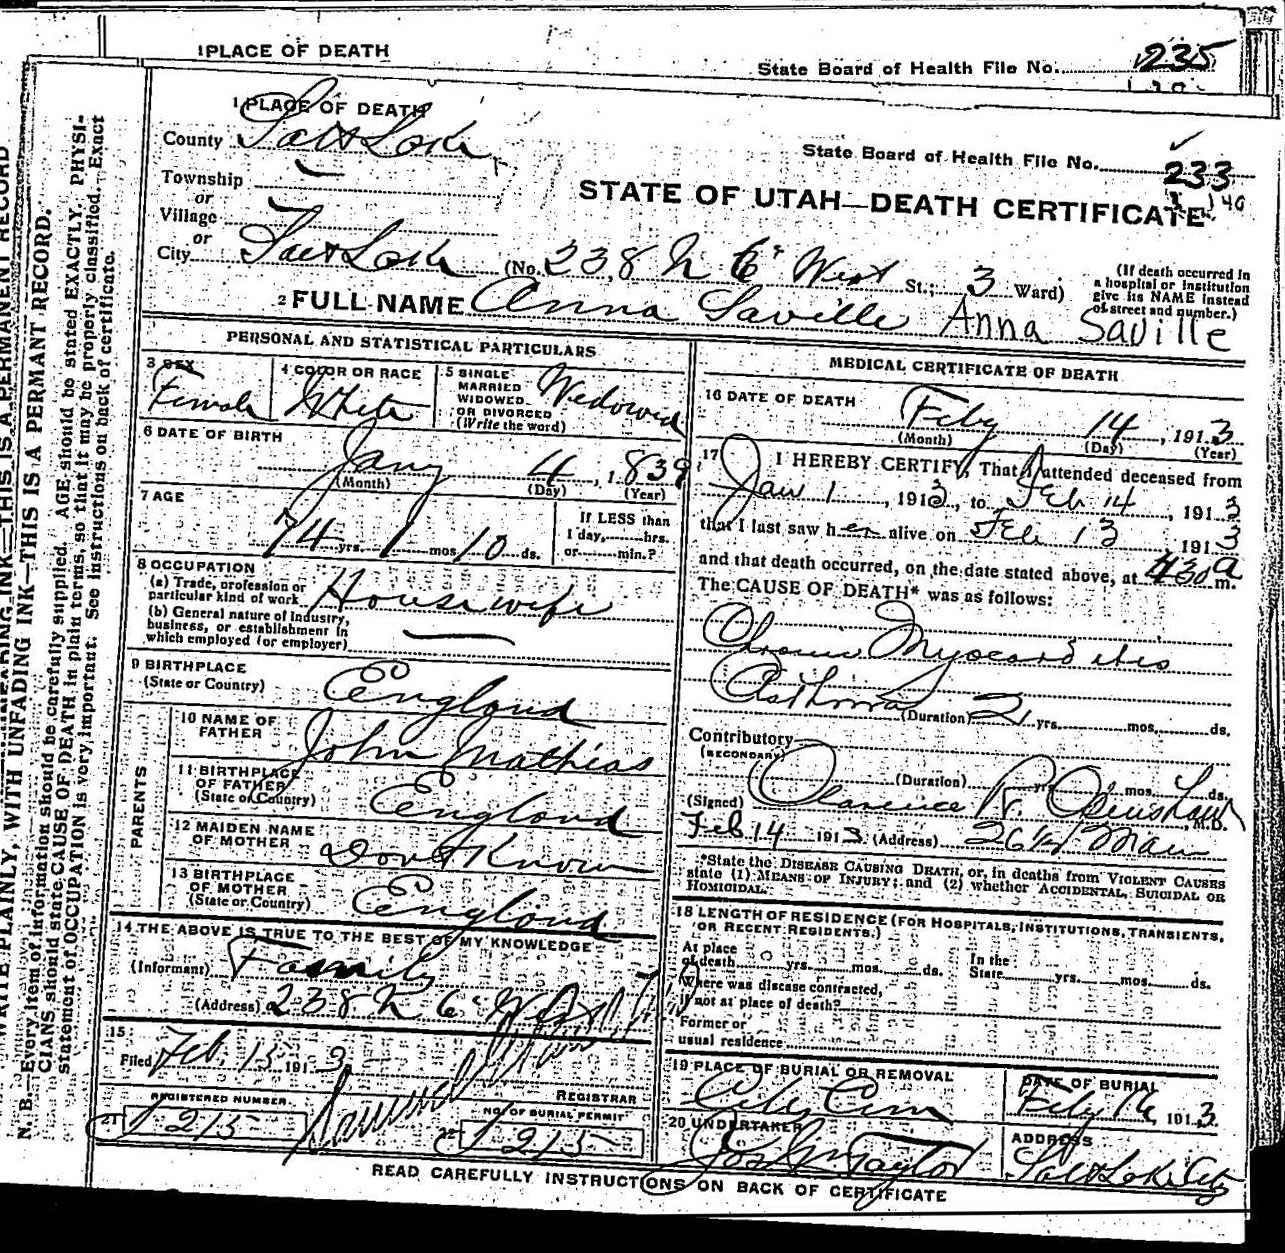 1 PLACE OF DEATH
State Board of Health File No. 235
1 PLACE OF DEATH
County Salt Lake
State Board of Health File No. 233
Township
or
Village
or
STATE OF UTAH—DEATH CERTIFICATE
City Salt Lake (No. 238 N 6" West St.; 3 Ward)
(If death occurred in
a hospital or institution
give its NAME instead
of street and number.)
2 FULL NAME Anna Saville Anna Saville
PERSONAL AND STATISTICAL PARTICULARS
3 SEX
Female
4 COLOR OR RACE
White
5 SINGLE
MARRIED
WIDOWED
OR DIVORCED
(Write the word)
Widowed
6 DATE OF BIRTH
Jany 4, 1839
(Month) (Day) (Year)
7 AGE
74 yrs. 1 mos 10 ds.
If LESS than
1 day, hrs.
or min.?
8 OCCUPATION
(a) Trade, profession or
particular kind of work Housewife
(b) General nature of industry,
business, or establishment in
which employed (or employer)
9 BIRTHPLACE
(State or Country) England
PARENTS
10 NAME OF
FATHER John Mathias
11 BIRTHPLACE
OF FATHER
(State or Country) England
12 MAIDEN NAME
OF MOTHER Dont Know
13 BIRTHPLACE
OF MOTHER
(State or Country) England
14 THE ABOVE IS TRUE TO THE BEST OF MY KNOWLEDGE
(Informant) Family
(Address) 238 N 6" West
15
Filed Feb. 15 1913
REGISTRAR
REGISTERED NUMBER
21 215
NO. OF BURIAL PERMIT
22 215
MEDICAL CERTIFICATE OF DEATH
16 DATE OF DEATH
Feby 14, 1913
(Month) (Day) (Year)
17 I HEREBY CERTIFY, That I attended deceased from
Jan 1, 1913, to Feb 14, 1913
that I last saw her alive on Feb 13 1913
and that death occurred, on the date stated above, at 430 a m.
The CAUSE OF DEATH* was as follows:
Chronic Myocarditis
Asthma
(Duration) 2 yrs. mos. ds.
Contributory
(SECONDARY)
(Duration) yrs. mos. ds.
(Signed) Clarence M.D.
Feb 14 1913 (Address) Main
*State the DISEASE CAUSING DEATH, or, in deaths from VIOLENT CAUSES
state (1) MEANS OF INJURY; and (2) whether ACCIDENTAL, SUICIDAL OR
HOMICIDAL.
18 LENGTH OF RESIDENCE (FOR HOSPITALS, INSTITUTIONS, TRANSIENTS,
OR RECENT RESIDENTS.)
At place
of death yrs. mos. ds.
In the
State yrs. mos. ds.
Where was disease contracted,
if not at place of death?
Former or
usual residence
19 PLACE OF BURIAL OR REMOVAL
City Cem
DATE OF BURIAL
Feby 16, 1913
20 UNDERTAKER
Jos Wm Taylor
ADDRESS
Salt Lake City
READ CAREFULLY INSTRUCTIONS ON BACK OF CERTIFICATE
WRITE PLAINLY, WITH UNFADING INK—THIS IS A PERMANT RECORD.
N. B.—Every item of information should be carefully supplied. AGE should be stated EXACTLY. PHYSI-
CIANS should state CAUSE OF DEATH in plain terms, so that it may be properly classified. Exact
statement of OCCUPATION is very important. See instructions on back of certificate.